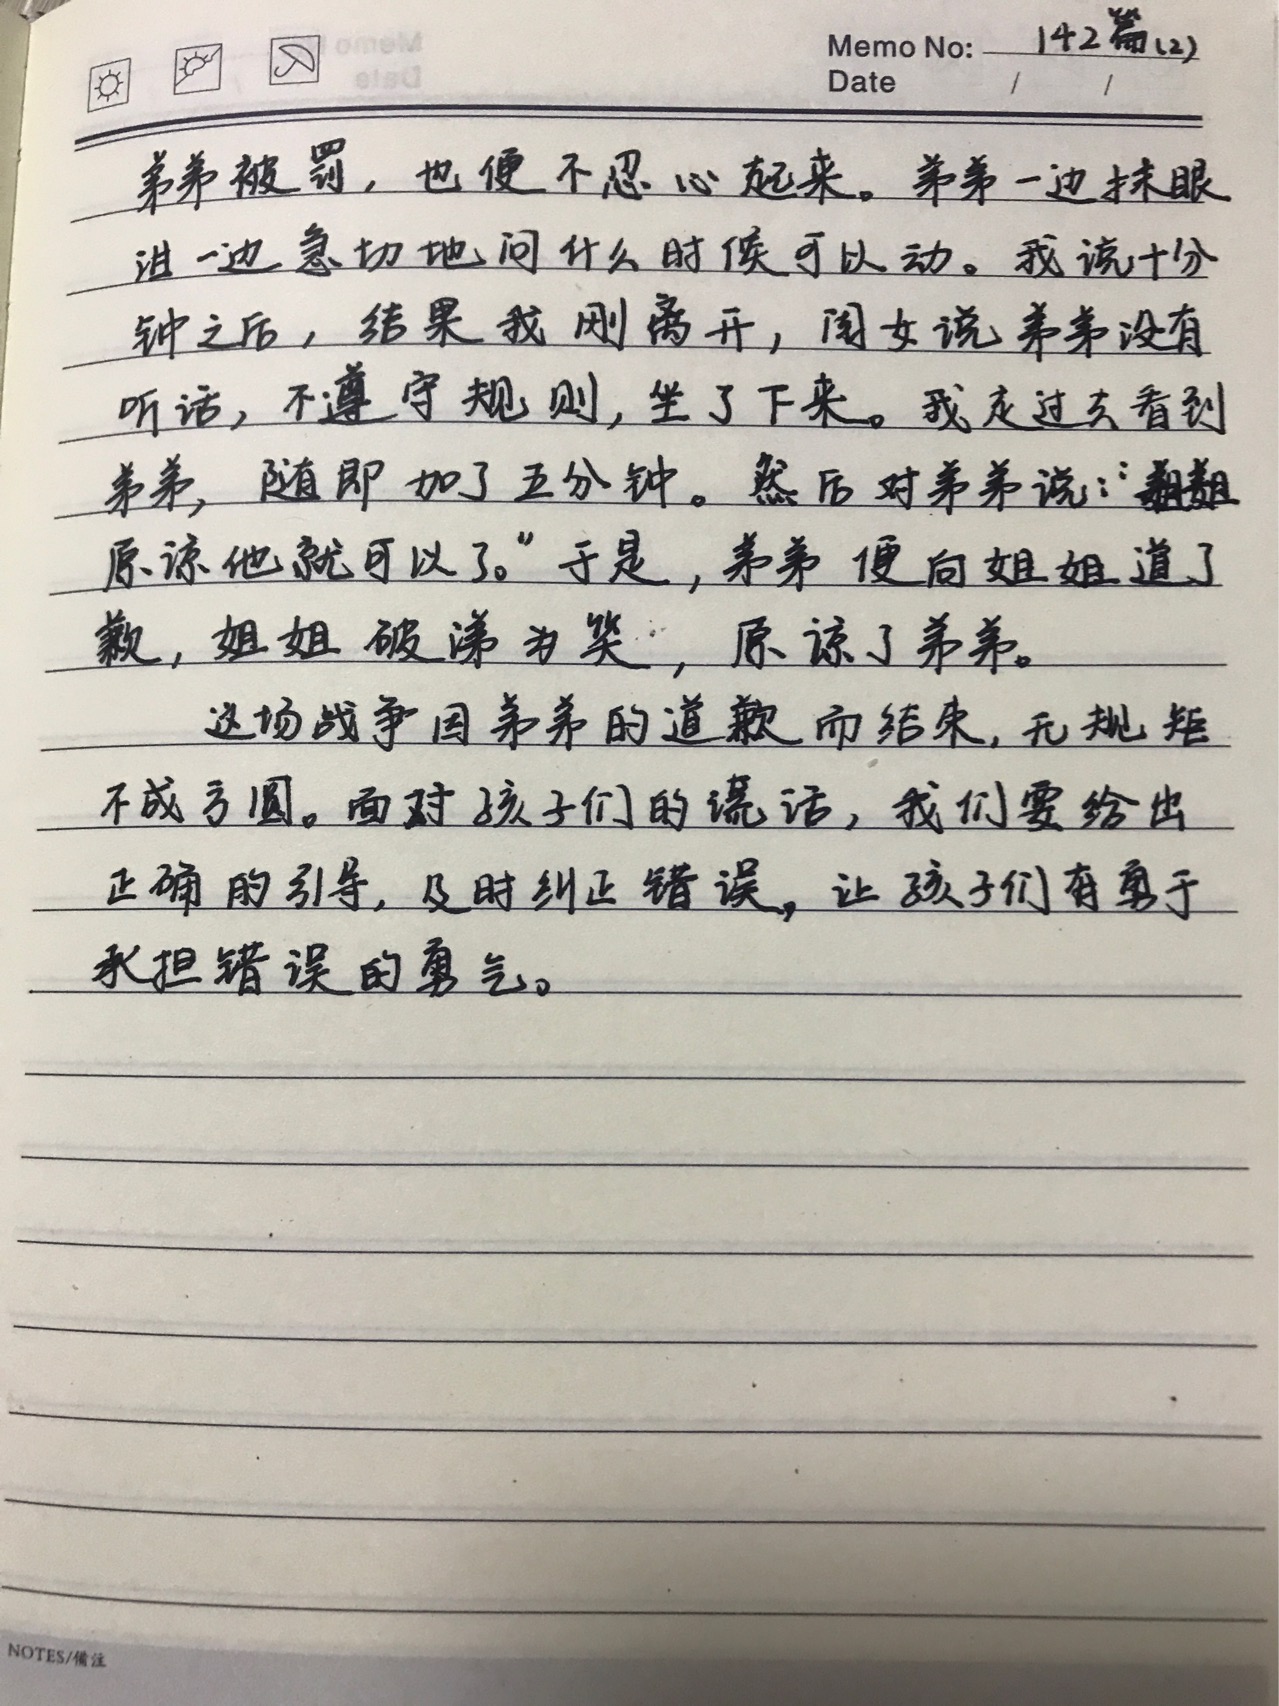 Memo No: 142篇(2)
Date / /
弟弟被罚，也便不忍心起来。弟弟一边抹眼
泪一边急切地问什么时候可以动。我说十分
钟之后，结果我刚离开，闺女说弟弟没有
听话，不遵守规则，坐了下来。我走过去看到
弟弟，随即加了五分钟。然后对弟弟说：“姐姐
原谅他就可以了。”于是，弟弟便向姐姐道了
歉，姐姐破涕为笑，原谅了弟弟。
这场战争因弟弟的道歉而结束，无规矩
不成方圆。面对孩子们的谎话，我们要给出
正确的引导，及时纠正错误，让孩子们有勇于
承担错误的勇气。
NOTES/備注